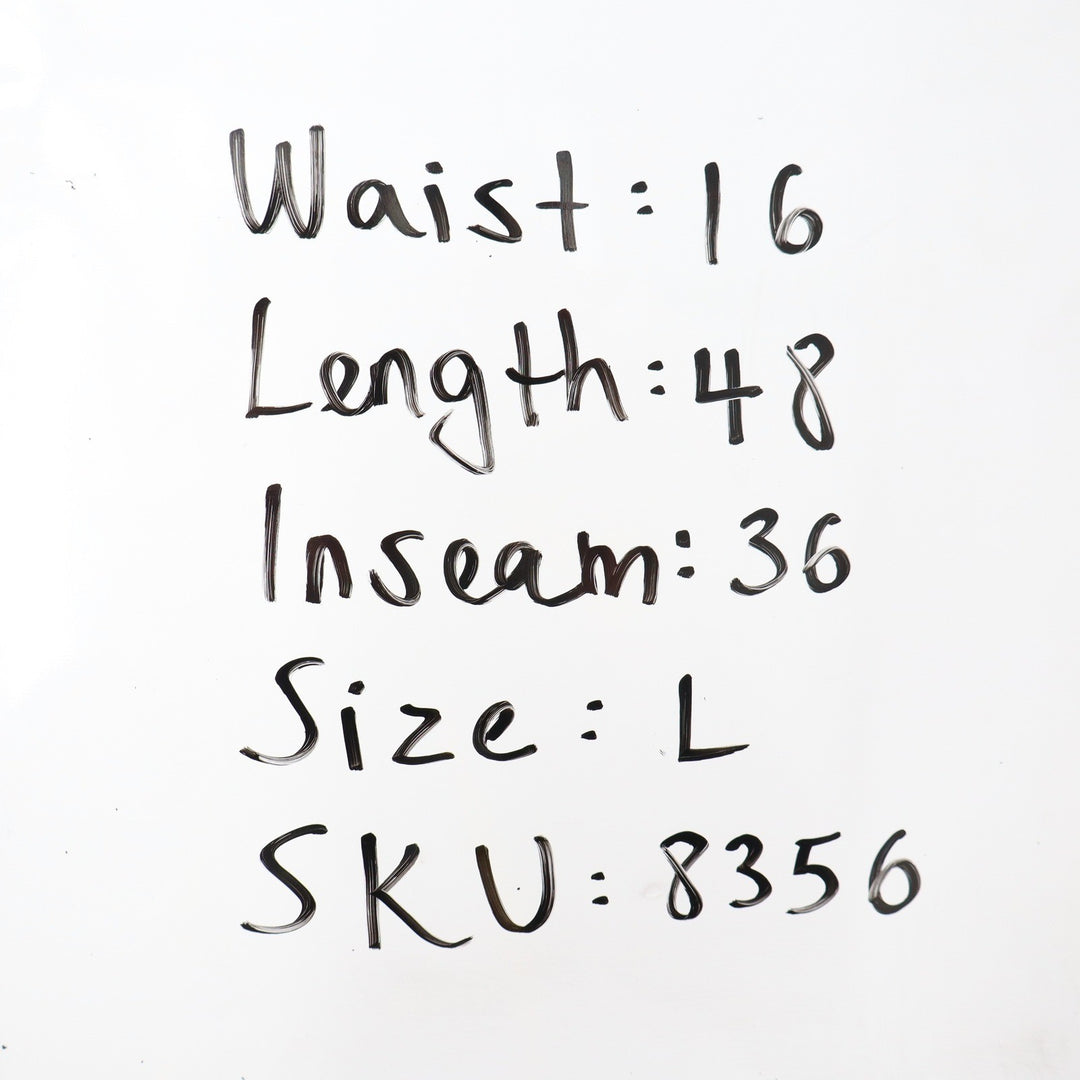 Waist: 16
Length: 48
Inseam: 36
Size: L
SKU: 8356